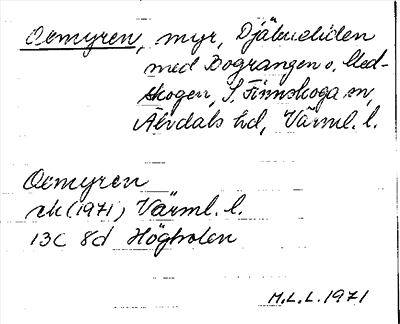 Ormyren, myr, Djäkneliden
med Bograngen o. Med-
skogen, S. Finnskoga sn,
Älvdals hd, Värml. l.
Ormyren
rk (1971) Värml. l.
13C 8d Högholen
M.L.L. 1971